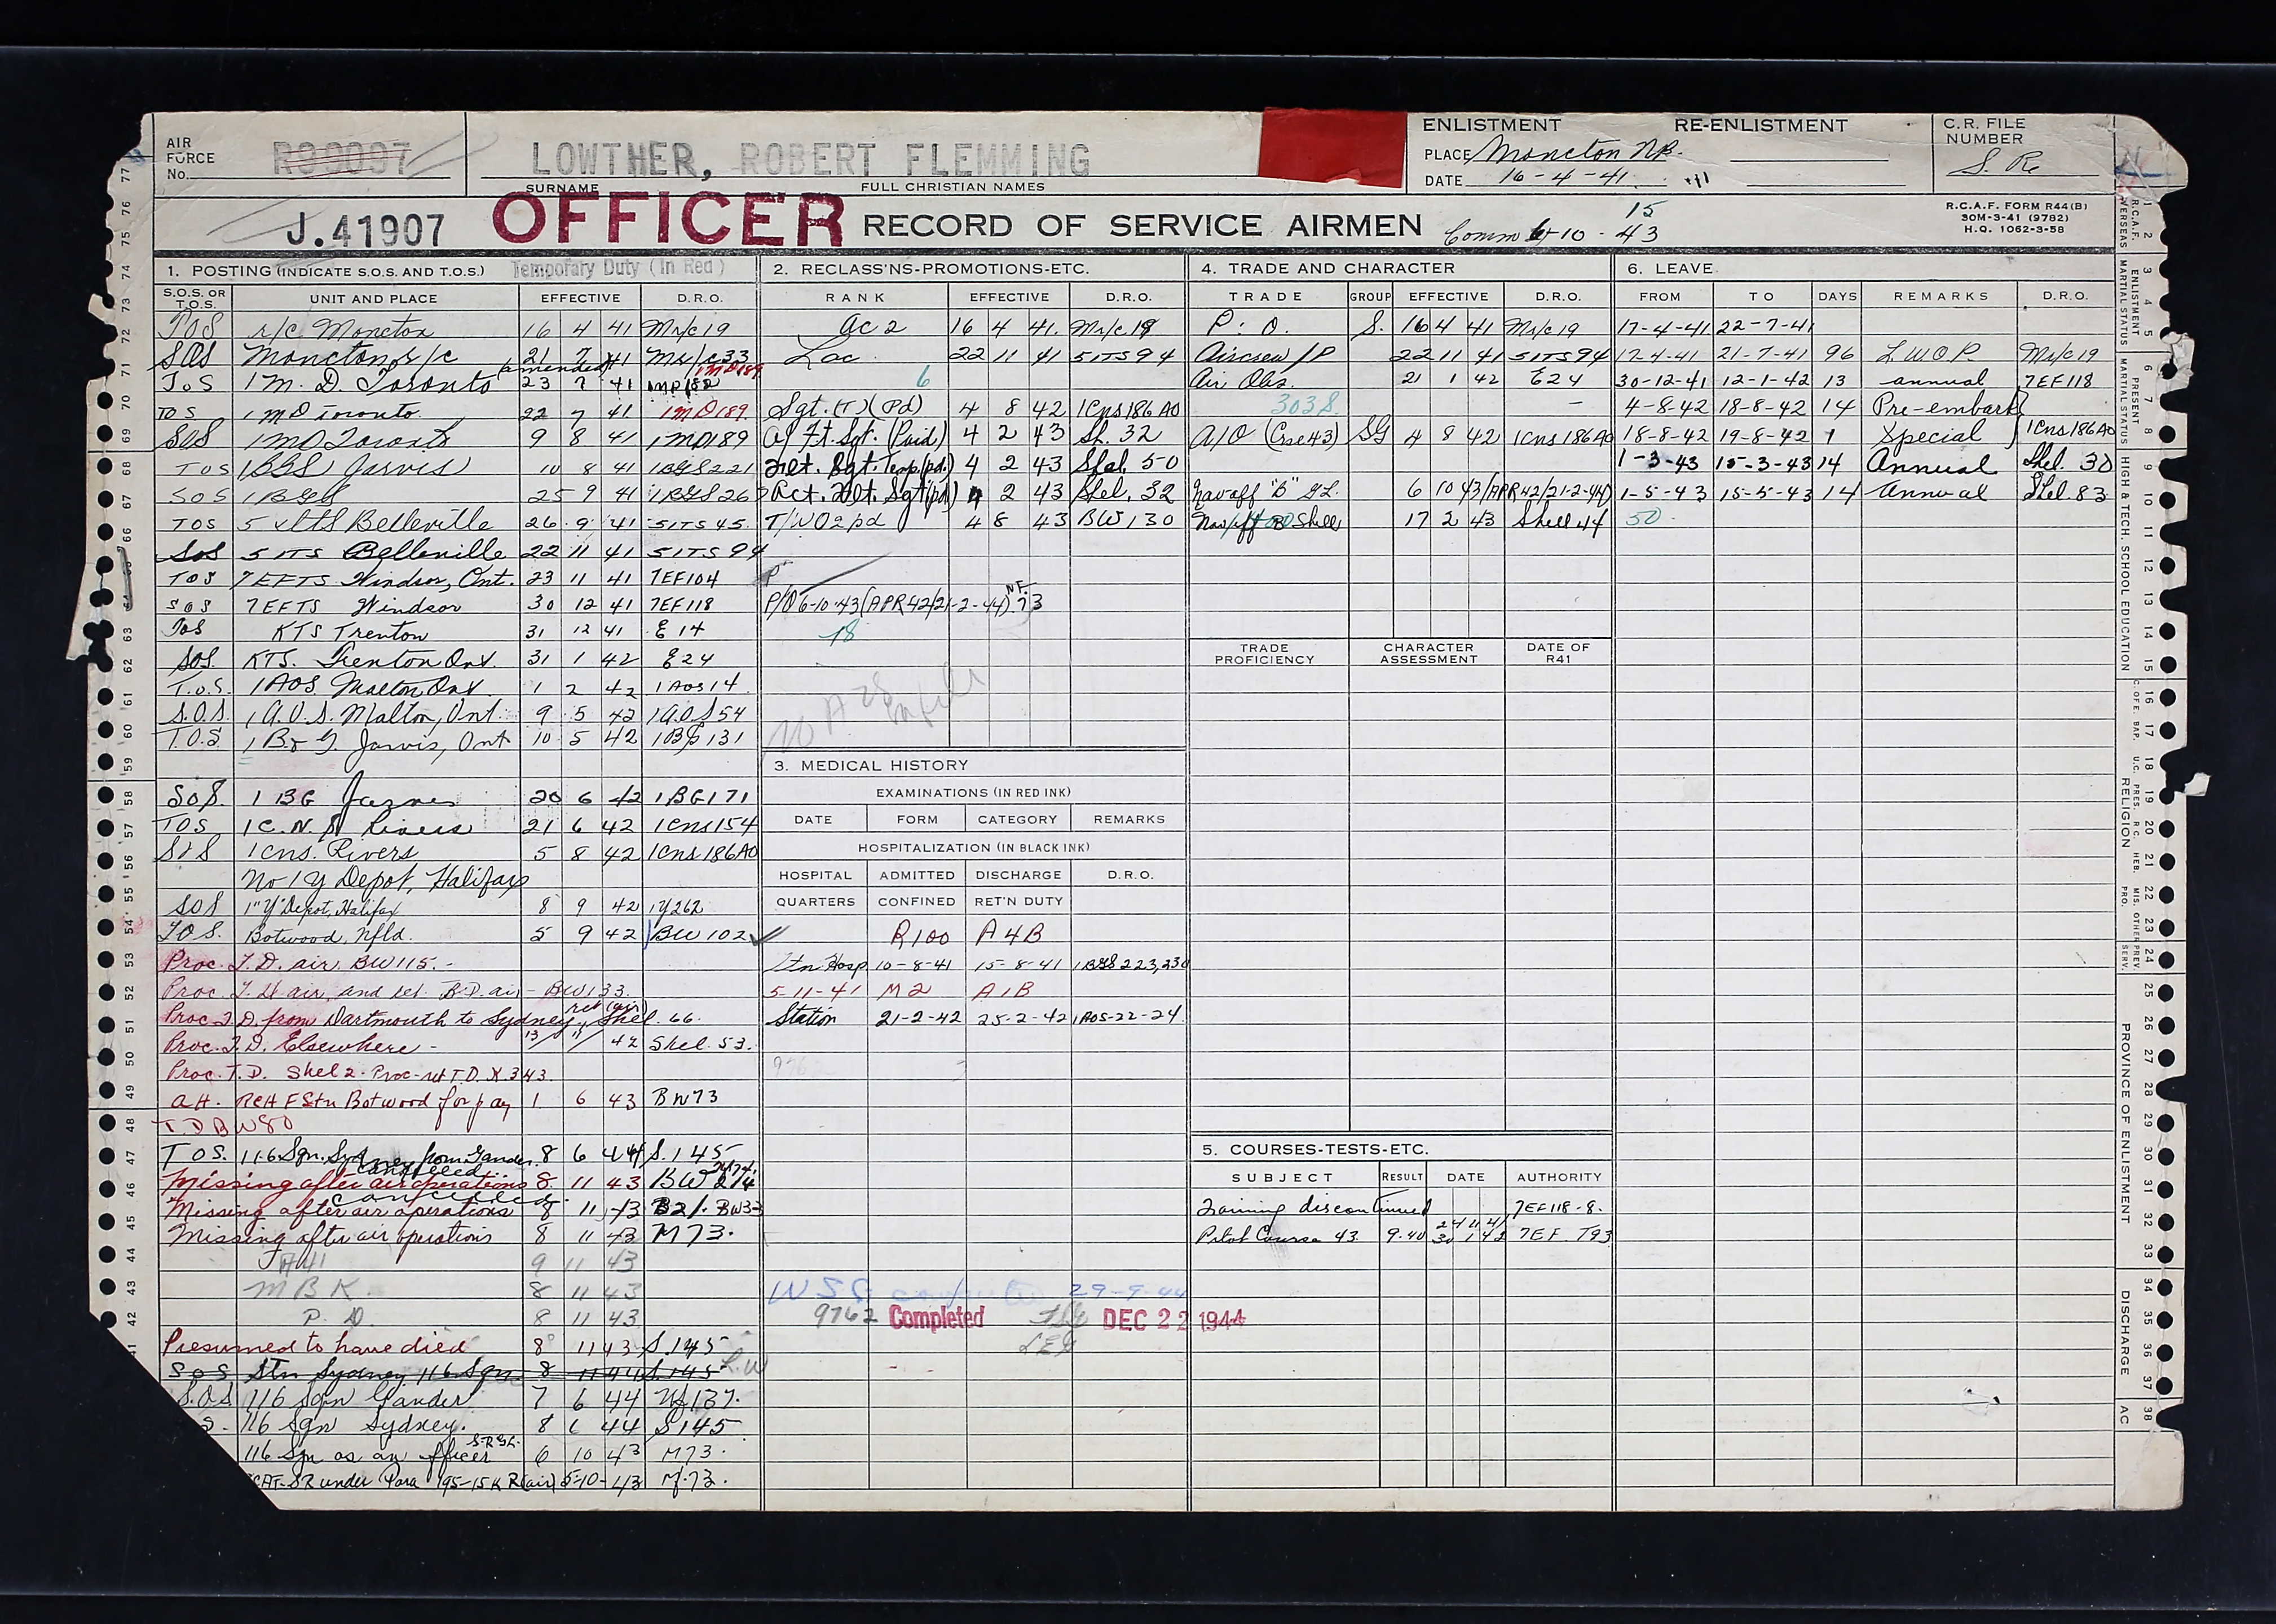 AIR FORCE No. R90097
LOWTHER, ROBERT FLEMMING
SURNAME FULL CHRISTIAN NAMES
ENLISTMENT RE-ENLISTMENT
PLACE Moncton NB.
DATE 16-4-41
C.R. FILE NUMBER
J.41907 OFFICER RECORD OF SERVICE AIRMEN
Comm 6-10-43
15
R.C.A.F. FORM R44(B)
30M-3-41 (9782)
H.Q. 1062-3-58
1. POSTING (INDICATE S.O.S. AND T.O.S.) Temporary Duty (In Red)
S.O.S. OR T.O.S. UNIT AND PLACE EFFECTIVE D.R.O.
TOS r/c Moncton 16 4 41 Mr/c 19
SOS Moncton r/c 21 7 41 Mr/c 33
(amended) 1MD189
TOS 1 M. D. Toronto 23 7 41 1MD182
TOS 1 MD Toronto 22 7 41 1MD189
SOS 1 MD Toronto 9 8 41 1MD189
TOS 1BGS Jarvis 10 8 41 1BGS221
SOS 1BGS 25 9 41 1BGS 262
TOS 5 ITS Belleville 26 9 41 5ITS 45
SOS 5 ITS Belleville 22 11 41 5ITS 94
TOS 7 EFTS Windsor, Ont. 23 11 41 7EF104
SOS 7EFTS Windsor 30 12 41 7EF118
TOS KTS Trenton 31 12 41 E14
SOS. KTS. Trenton Ont. 31 1 42 E24
T.O.S. 1AOS Malton Ont. 1 2 42 1AOS14
S.O.S. 1 A.O.S. Malton, Ont. 9 5 42 1AOS54
T.O.S. 1 B & G. Jarvis, Ont 10 5 42 1BG131
SOS. 1 BG Jarvis 20 6 42 1BG171
TOS 1 C.N.S Rivers 21 6 42 1Cns154
SOS 1 Cns. Rivers 5 8 42 1Cns186AO
No 1 Y Depot, Halifax
SOS 1"Y" Depot, Halifax 8 9 42 1Y262
TOS. Botwood, Nfld. 5 9 42 BW102
Proc. T.D. air. BW115.-
Proc. T.D air, and ret. B.D. air - BW133.
Proc T.D. from Dartmouth to Sydney, ret (air) Shel. 66.
Proc. T.D. Elsewhere - 13/11/42 Shel. 53.
Proc. T.D. Shel 2. Proc-ret T.D. X.343.
att. Botwood for pay 1 6 43 BW73
T.D BW80
TOS. 116 Sqn. Sydney from Gander 8 6 44 S.145
cancelled
Missing after air operations 8 11 43 BW 274
cancelled
Missing after air operations 8 11 43 B21. BW33
Missing after air operations 8 11 43 M73.
9 11 43
M B K 8 11 43
P. D. 8 11 43
Presumed to have died 8 11 43 S.145
SOS Stn Sydney 116 Sqn 8 11 44 S.145
S.O.S 116 Sqn Gander 7 6 44
116 Sqn Sydney. 8 6 44 S145
116 Sqn as an officer 6 10 43 M73.
SR under Para 195-15 K R(air) 5-10-43 M73.
2. RECLASS'NS-PROMOTIONS-ETC.
RANK EFFECTIVE D.R.O.
AC2 16 4 41. Mr/c 19
Lac 22 11 41 5ITS94
6
Sgt. (T) (Pd) 4 8 42 1Cns186AO
A/ Flt. Sgt. (Paid) 4 2 43 Sh. 32
Flt. Sgt. Temp (pd.) 4 2 43 Shel. 50
Act. Flt. Sgt (pd) 4 2 43 Shel. 32
T/WO2 pd 4 8 43 BW130
P/O 6-10-43 (APR42/21-2-44) 73
18
3. MEDICAL HISTORY
EXAMINATIONS (IN RED INK)
DATE FORM CATEGORY REMARKS
HOSPITALIZATION (IN BLACK INK)
HOSPITAL ADMITTED DISCHARGE D.R.O.
QUARTERS CONFINED RET'N DUTY
R100 A4B
Stn Hosp 10-8-41 15-8-41 1BGS 223,230
5-11-41 M2 A1B
Station 21-2-42 25-2-42 1AOS-22-24
29-9-44
9762 Completed DEC 22 1944
4. TRADE AND CHARACTER
TRADE GROUP EFFECTIVE D.R.O.
P: O. S. 16 4 41 Mr/c 19
Aircrew/P 22 11 41 5ITS94
Air Obs. 21 1 42 E24
303S
A/O (Crse 43) SG 4 8 42 1Cns186AO
Nav off "B" GL. 6 10 43 (APR42/21-2-44)
Nav/off B Shell 17 2 43 Shell 44
TRADE PROFICIENCY CHARACTER ASSESSMENT DATE OF R41
5. COURSES-TESTS-ETC.
SUBJECT RESULT DATE AUTHORITY
Training discontinued 7EF118-8.
Pilot Course 43 9.40 24 11 41 30 1 42 7EF T93
6. LEAVE
FROM TO DAYS REMARKS D.R.O.
17-4-41 22-7-41
17-4-41 21-7-41 96 L.W.O.P. Mr/c 19
30-12-41 12-1-42 13 annual 7EF118
4-8-42 18-8-42 14 Pre-embark
18-8-42 19-8-42 1 Special 1Cns186AO
1-3-43 15-3-43 14 Annual Shel. 30
1-5-43 15-5-43 14 Annual Shel. 83
50
R.C.A.F. OVERSEAS
ENLISTMENT MARTIAL STATUS
PRESENT MARTIAL STATUS
HIGH & TECH. SCHOOL EDUCATION
C. OF E. BAP. U.C. PRES. R.C. HEB. MIS. OTHER PRO. PREV. SERV.
RELIGION
PROVINCE OF ENLISTMENT
DISCHARGE
AC
1 2 3 4 5 6 7 8 9 10 11 12 13 14 15 16 17 18 19 20 21 22 23 24 25 26 27 28 29 30 31 32 33 34 35 36 37 38
77 76 75 74 73 72 71 70 69 68 67 66 63 62 61 60 59 58 57 56 55 54 53 52 51 50 49 48 47 46 45 44 43 42